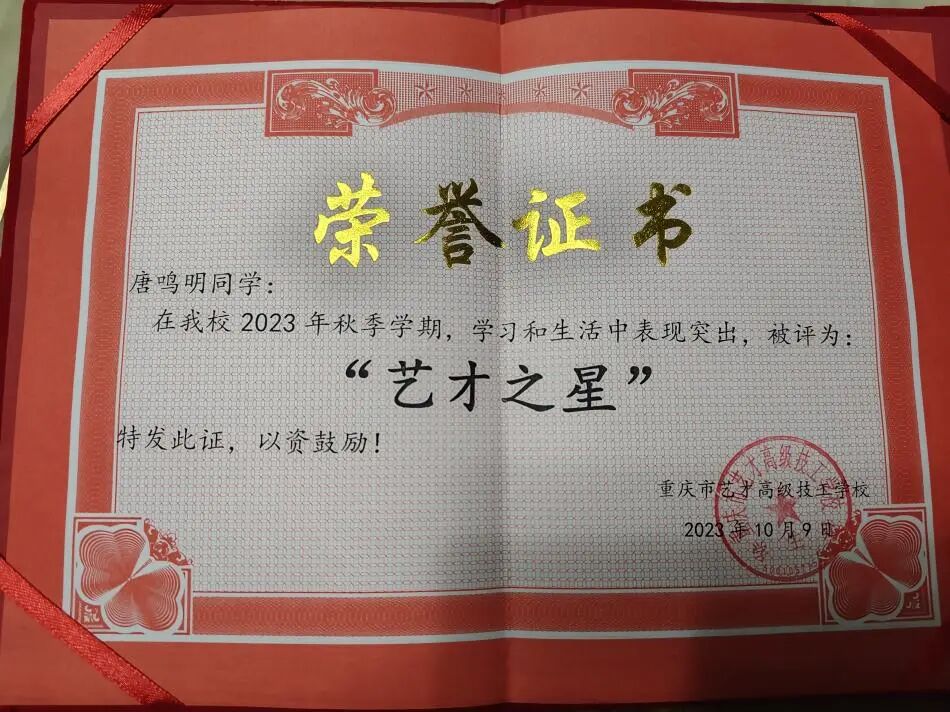 荣誉证书
唐鸣明同学：
在我校 2023 年秋季学期，学习和生活中表现突出，被评为：
“艺才之星”
特发此证，以资鼓励！
重庆市艺才高级技工学校
2023 年 10 月 9 日